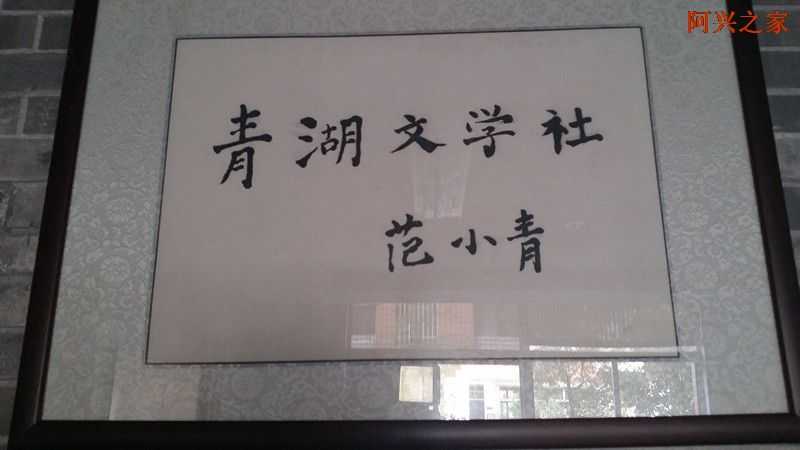 阿兴之家
青湖文学社
范小青